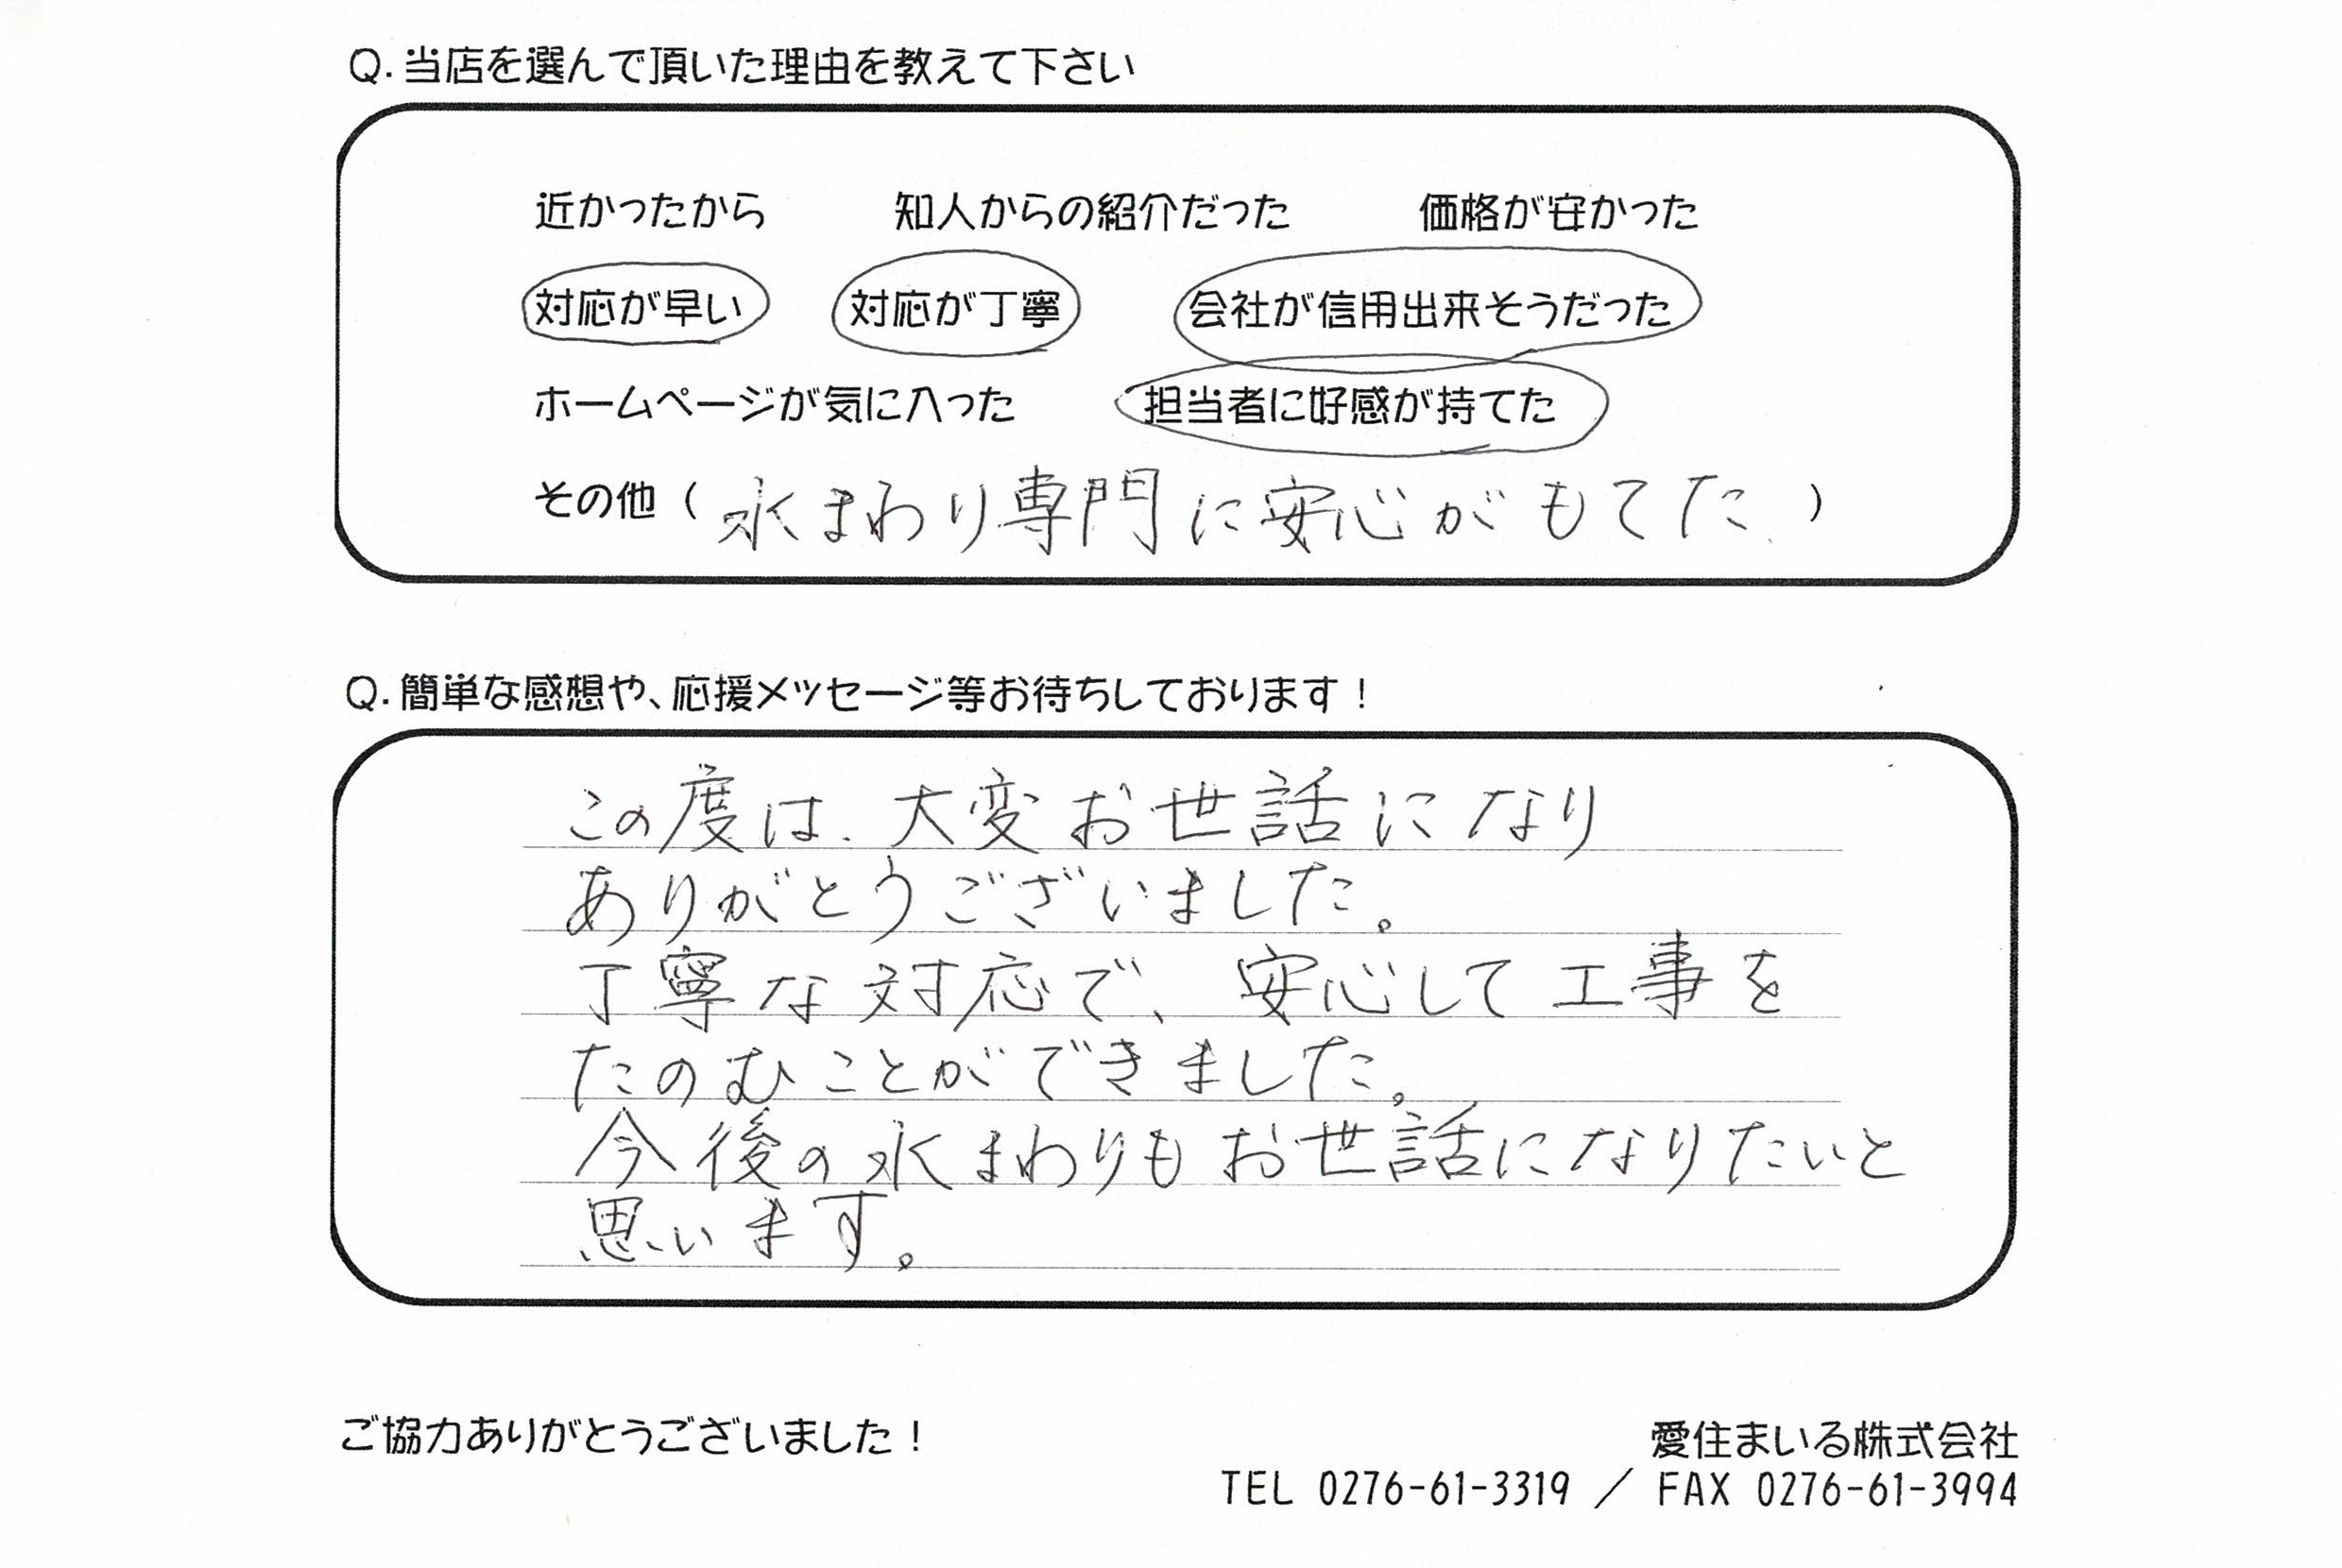 Q.当店を選んで頂いた理由を教えて下さい
近かったから 知人からの紹介だった 価格が安かった
対応が早い 対応が丁寧 会社が信用出来そうだった
ホームページが気に入った 担当者に好感が持てた
その他（水まわり専門に安心がもてた.）
Q.簡単な感想や、応援メッセージ等お待ちしております！
この度は、大変お世話になり
ありがとうございました。
丁寧な対応で、安心して工事を
たのむことができました。
今後の水まわりもお世話になりたいと
思います。
ご協力ありがとうございました！
愛住まいる株式会社
TEL 0276-61-3319 ／ FAX 0276-61-3994